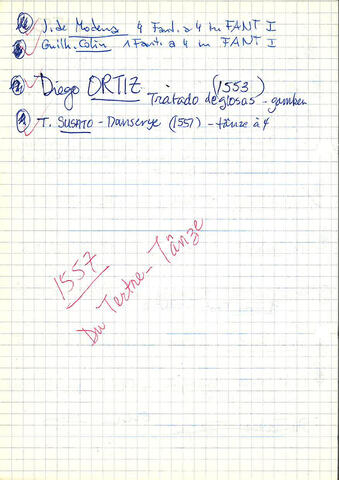 J. de Modena 4 Fant. a 4 in FANT I
Guilh. Colin 1 Fant. a 4 in FANT I
Diego ORTIZ (1553)
Tratado de glosas - gamben
T. SUSATO - Danserye (1551) - tänze à 4
1557
Du Tertre - Tänze